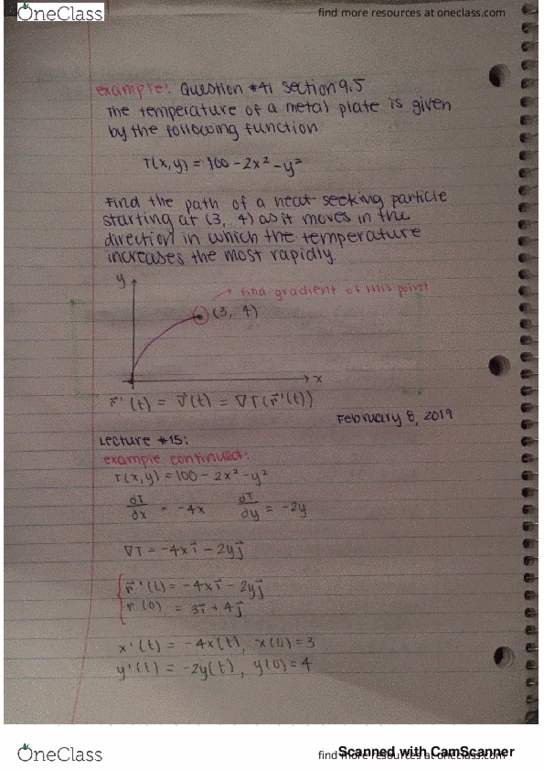 OneClass
find more resources at oneclass.com
example: Question #41 section 9.5
The temperature of a metal plate is given
by the following function
T(x,y) = 100 - 2x² - y²
Find the path of a heat-seeking particle
starting at (3, 4) as it moves in the
direction in which the temperature
increases the most rapidly.
y
find gradient of this point
(3, 4)
x
r⃗'(t) = v⃗(t) = ∇T(r⃗'(t))
February 8, 2019
Lecture #15:
example continued:
T(x,y) = 100 - 2x² - y²
∂T/∂x = -4x ∂T/∂y = -2y
∇T = -4xi⃗ - 2yj⃗
r⃗'(t) = -4xi⃗ - 2yj⃗
r(0) = 3i⃗ + 4j⃗
x'(t) = -4x(t), x(0) = 3
y'(t) = -2y(t), y(0) = 4
OneClass
find more resources at oneclass.com
Scanned with CamScanner